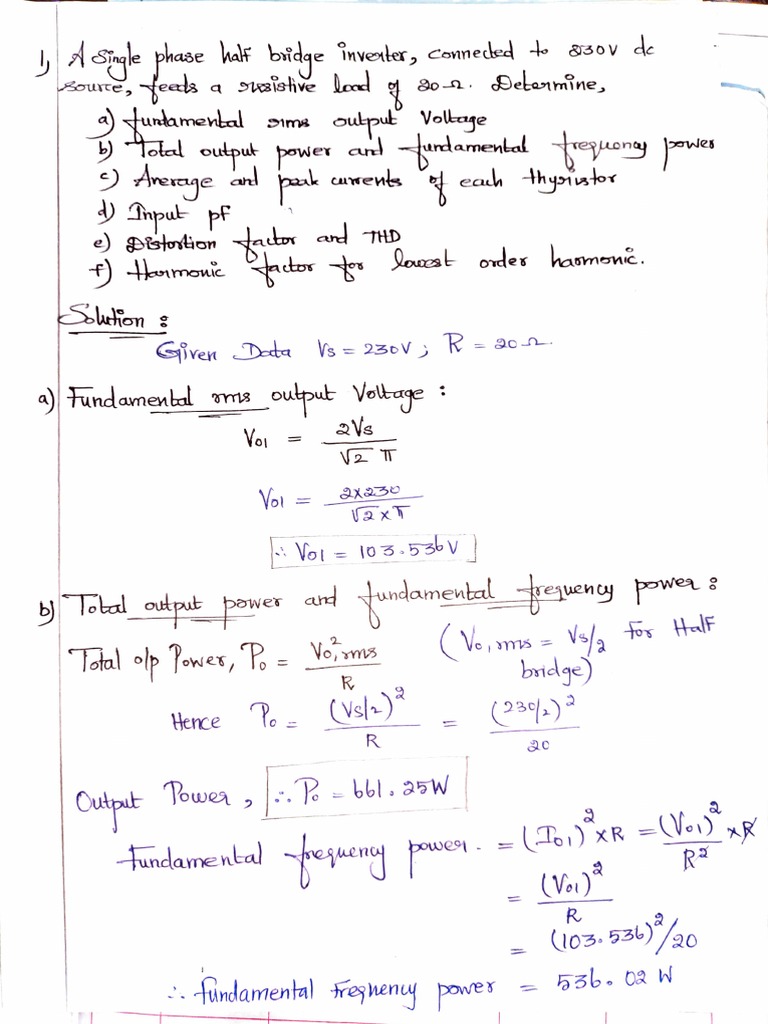 1) A Single phase half bridge inverter, connected to 230V dc
source, feeds a resistive load of 20Ω. Determine,
a) fundamental rms output Voltage
b) Total output power and fundamental frequency power
c) Average and peak currents of each thyristor
d) Input pf
e) Distortion factor and THD
f) Harmonic factor for lowest order harmonic.
Solution :
Given Data Vs = 230V ; R = 20Ω.
a) Fundamental rms output Voltage :
V01 = 2Vs / √2 π
V01 = 2×230 / √2×π
∴ V01 = 103.536V
b) Total output power and fundamental frequency power :
Total o/p Power, Po = Vo,rms² / R (Vo,rms = Vs/2 for Half bridge)
Hence Po = (Vs/2)² / R = (230/2)² / 20
Output Power, ∴ Po = 661.25W
Fundamental frequency power. = (I01)² ×R = (V01)² / R² ×R
= (V01)² / R
= (103.536)²/20
∴ fundamental Frequency power = 536.02 W